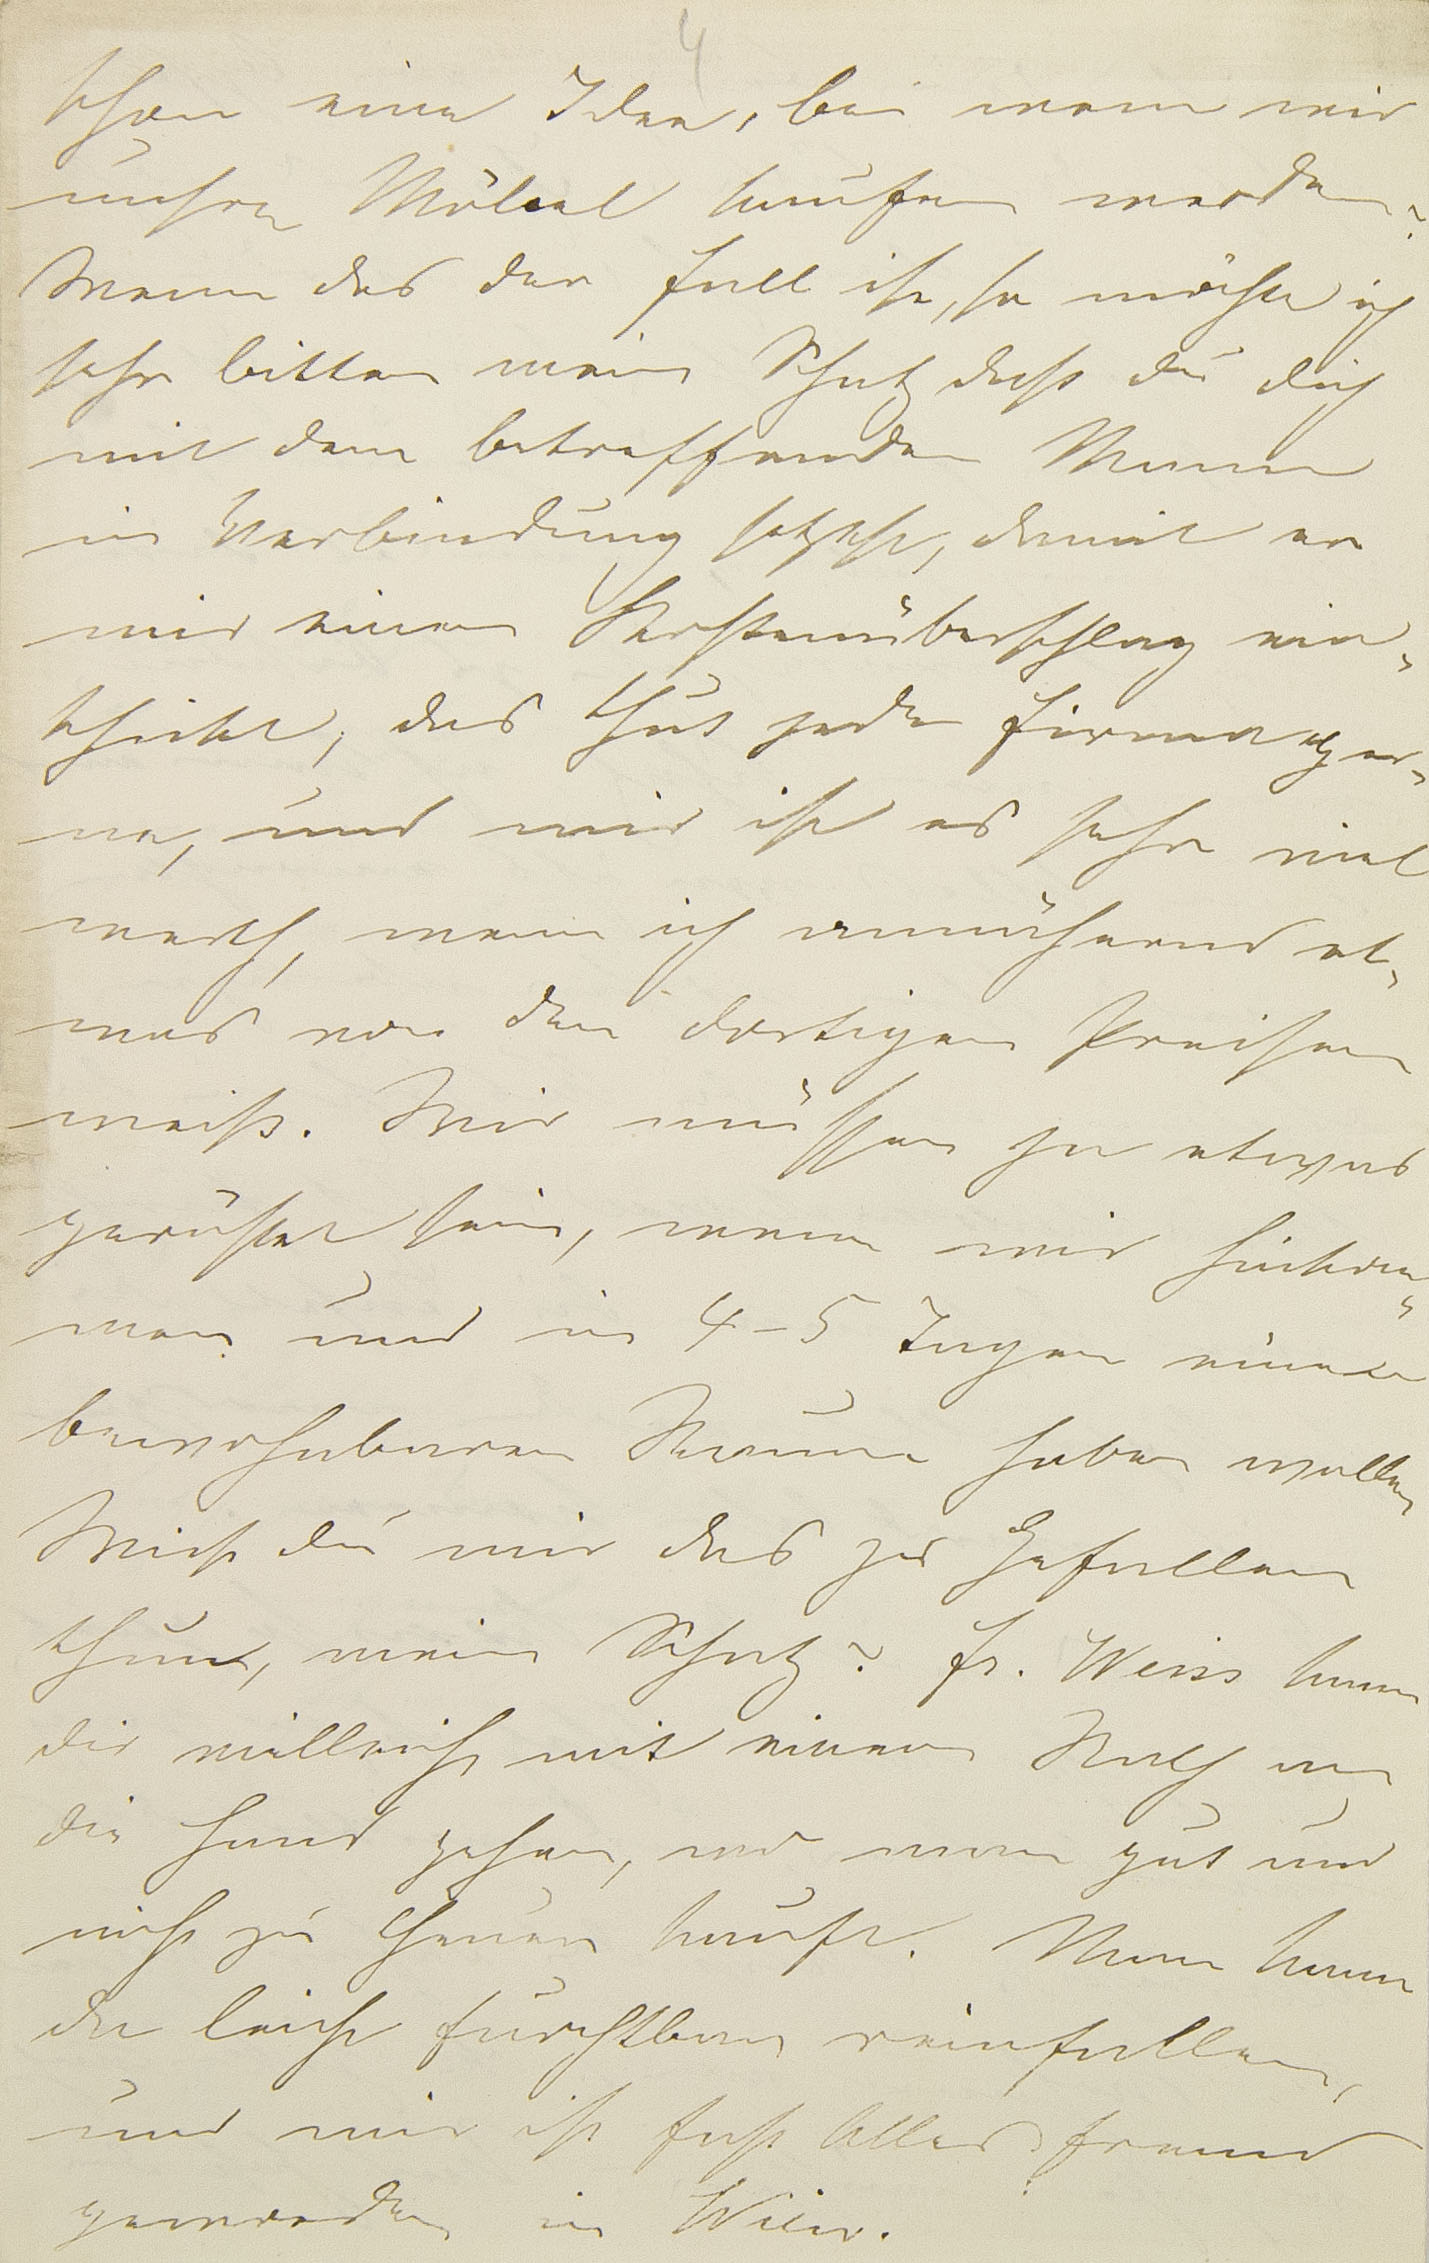 4
schon eine Idee, bei wem wir
unsre Möbel kaufen werden?
Wenn das der Fall ist, so möchte ich
sehr bitten mein Schatz dass du dich
mit dem betreffenden Mann
in Verbindung setzest, damit er
mir einen Kostenüberschlag ein-
schickt, das thut jede Firma ger-
ne, und mir ist es sehr viel
werth, wenn ich annähernd et-
was von den dortigen Preisen
weiß. Wir müssen ja etwas
gerüstet sein, wenn wir hinkom-
men und in 4-5 Tagen einen
bewohnbaren Raum haben wollen
Wirst du mir das zu Gefallen
thun, mein Schatz? Fr. Weiss kann
dir vielleicht mit einem Rath an
die Hand gehen, wo man gut und
nicht zu theuer kauft. Man kann
da leicht furchtbar reinfallen,
und mir ist fast Alles fremd
geworden in Wien.